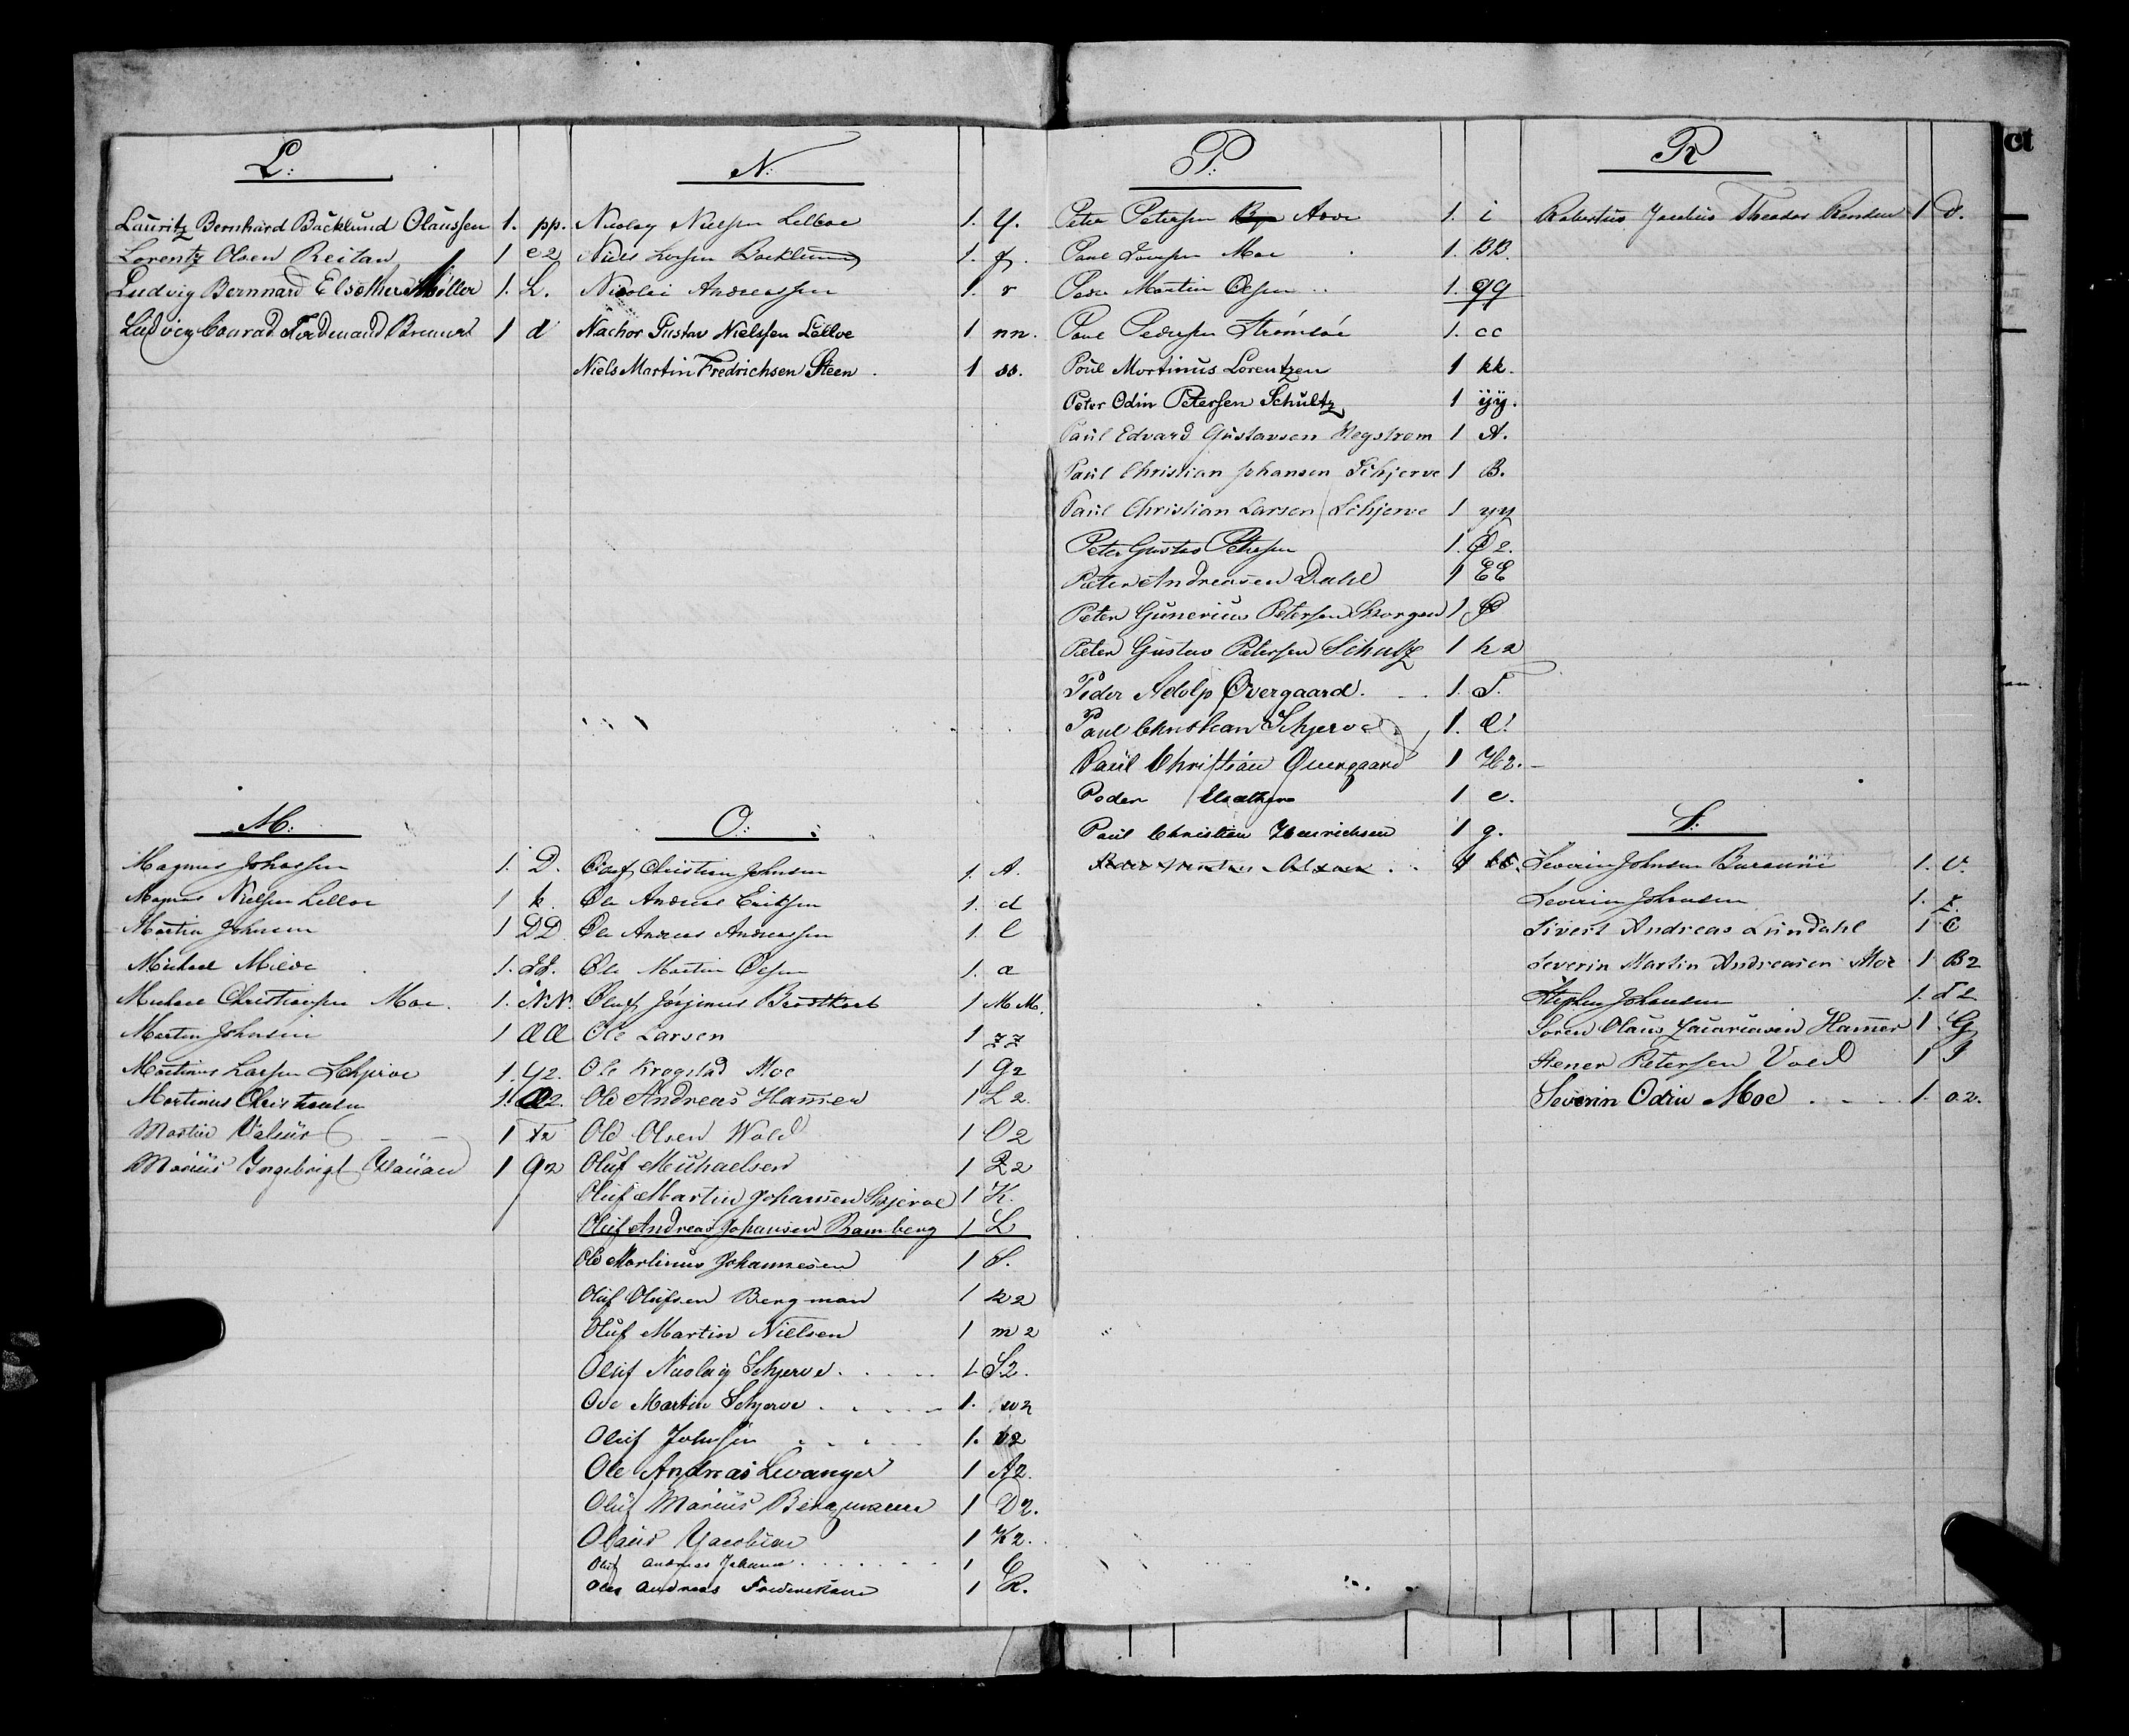 L:
Lauritz Bernhard Bäcklund Olaussen 1. pp.
Lorentz Olsen Reitan 1 e2
Ludvig Bernnard Elsæther Möller 1. L.
Ludvig Conrad Ferdinand 1 d
M:
Magnus Johassen 1. D.
Magnus Nielsen Lelloe 1 k.
Martin Johnsen 1 DD
Michael Miloe 1.
Michael Christiansen Moe. 1. NN.
Martin Johnsen 1 ææ
Martinus Larsen Schjerve 1. y2.
Martinus Christiansen 1. Æ2.
Martin Valsür 1 x2
Marius Ingebrigt Hauan 1 q2
N:
Nicolay Nielsen Lelloe 1. y.
Niels Larsen Backlund 1. f.
Nicolai Andreassen 1. r
Nachor Gustav Nielssen Lelloe 1 nn.
Niels Martin Fredrichsen Steen. 1 ss.
O:
Oluf Christian Johnsen 1. A.
Ole Andreas Eriksen 1. d
Ole Andreas Andreassen 1. l
Ole Martin Olsen 1. a
Oluf Jörginus 1 MM.
Ole Larsen 1 zz
Ole Krogstad Moe 1 g2
Ole Andreas Hammer 1 L2.
Ole Olsen Wold 1 O2
Oluf Michaelsen 1 Z2
Oluf Martin Johansen Skjerve 1 K.
Oluf Andreas Johansen Ramberg 1 L
Ole Martinus Johannesen 1 S.
Oluf Olufsen Bergman 1 k2
Oluf Martin Nielsen 1 m2
Oluf Nicolay Schjerve. 1 S2.
Ove Martin Schjerve. 1. w2
Oluf Johnsen 1. v2
Ole Andreas Levanger 1 A2.
Oluf Marius Bergmann 1 D2.
Olaus Jacobsen 1 K2.
Oluf Andreas Johnsen 1 C
Ole Andreas Frederiksen 1 R.
P:
Peter Petersen Aver 1. i
Paul Moe 1. BB.
Peder Martin Olsen 1. gg
Paul Pedersen Strömsöe 1. cc
Poul Mortinus Lorentzen 1 kk.
Peter Odin Petersen Schultz 1 ÿÿ.
Paul Edvard Gustavsen Hegstrøm 1 A.
Paul Christian Johansen Schjerve 1 B.
Paul Christian Larsen Schjerve 1 yy
Peter Gustav Petersen 1. Ø2.
Peter Andreasen Dahl 1 EE
Peter Gunerius Petersen Borgen 1 P
Peter Gustav Petersen Schultz 1 h2
Peder Adolp Overgaard. 1. T.
Paul Christian Schjerve 1. Æ!
Paul Christian Overgaard 1 H2.
Peder Elsæther 1 e.
Paul Christian Henrichsen 1 g.
R
Robertus Jacobus Theodor 1 d.
S:
Severin Johnsen Buraune 1. v.
Severin Johansen 1. z.
Sivert Andreas Lundahl 1 C
Severin Martin Andreasen Moe 1 B2
Stephen Johansen 1. d2
Sören Olaus Zacariasen Hammer 1. G
Stener Petersen Vold 1 I
Severin Odin Moe 1. o2.
ct